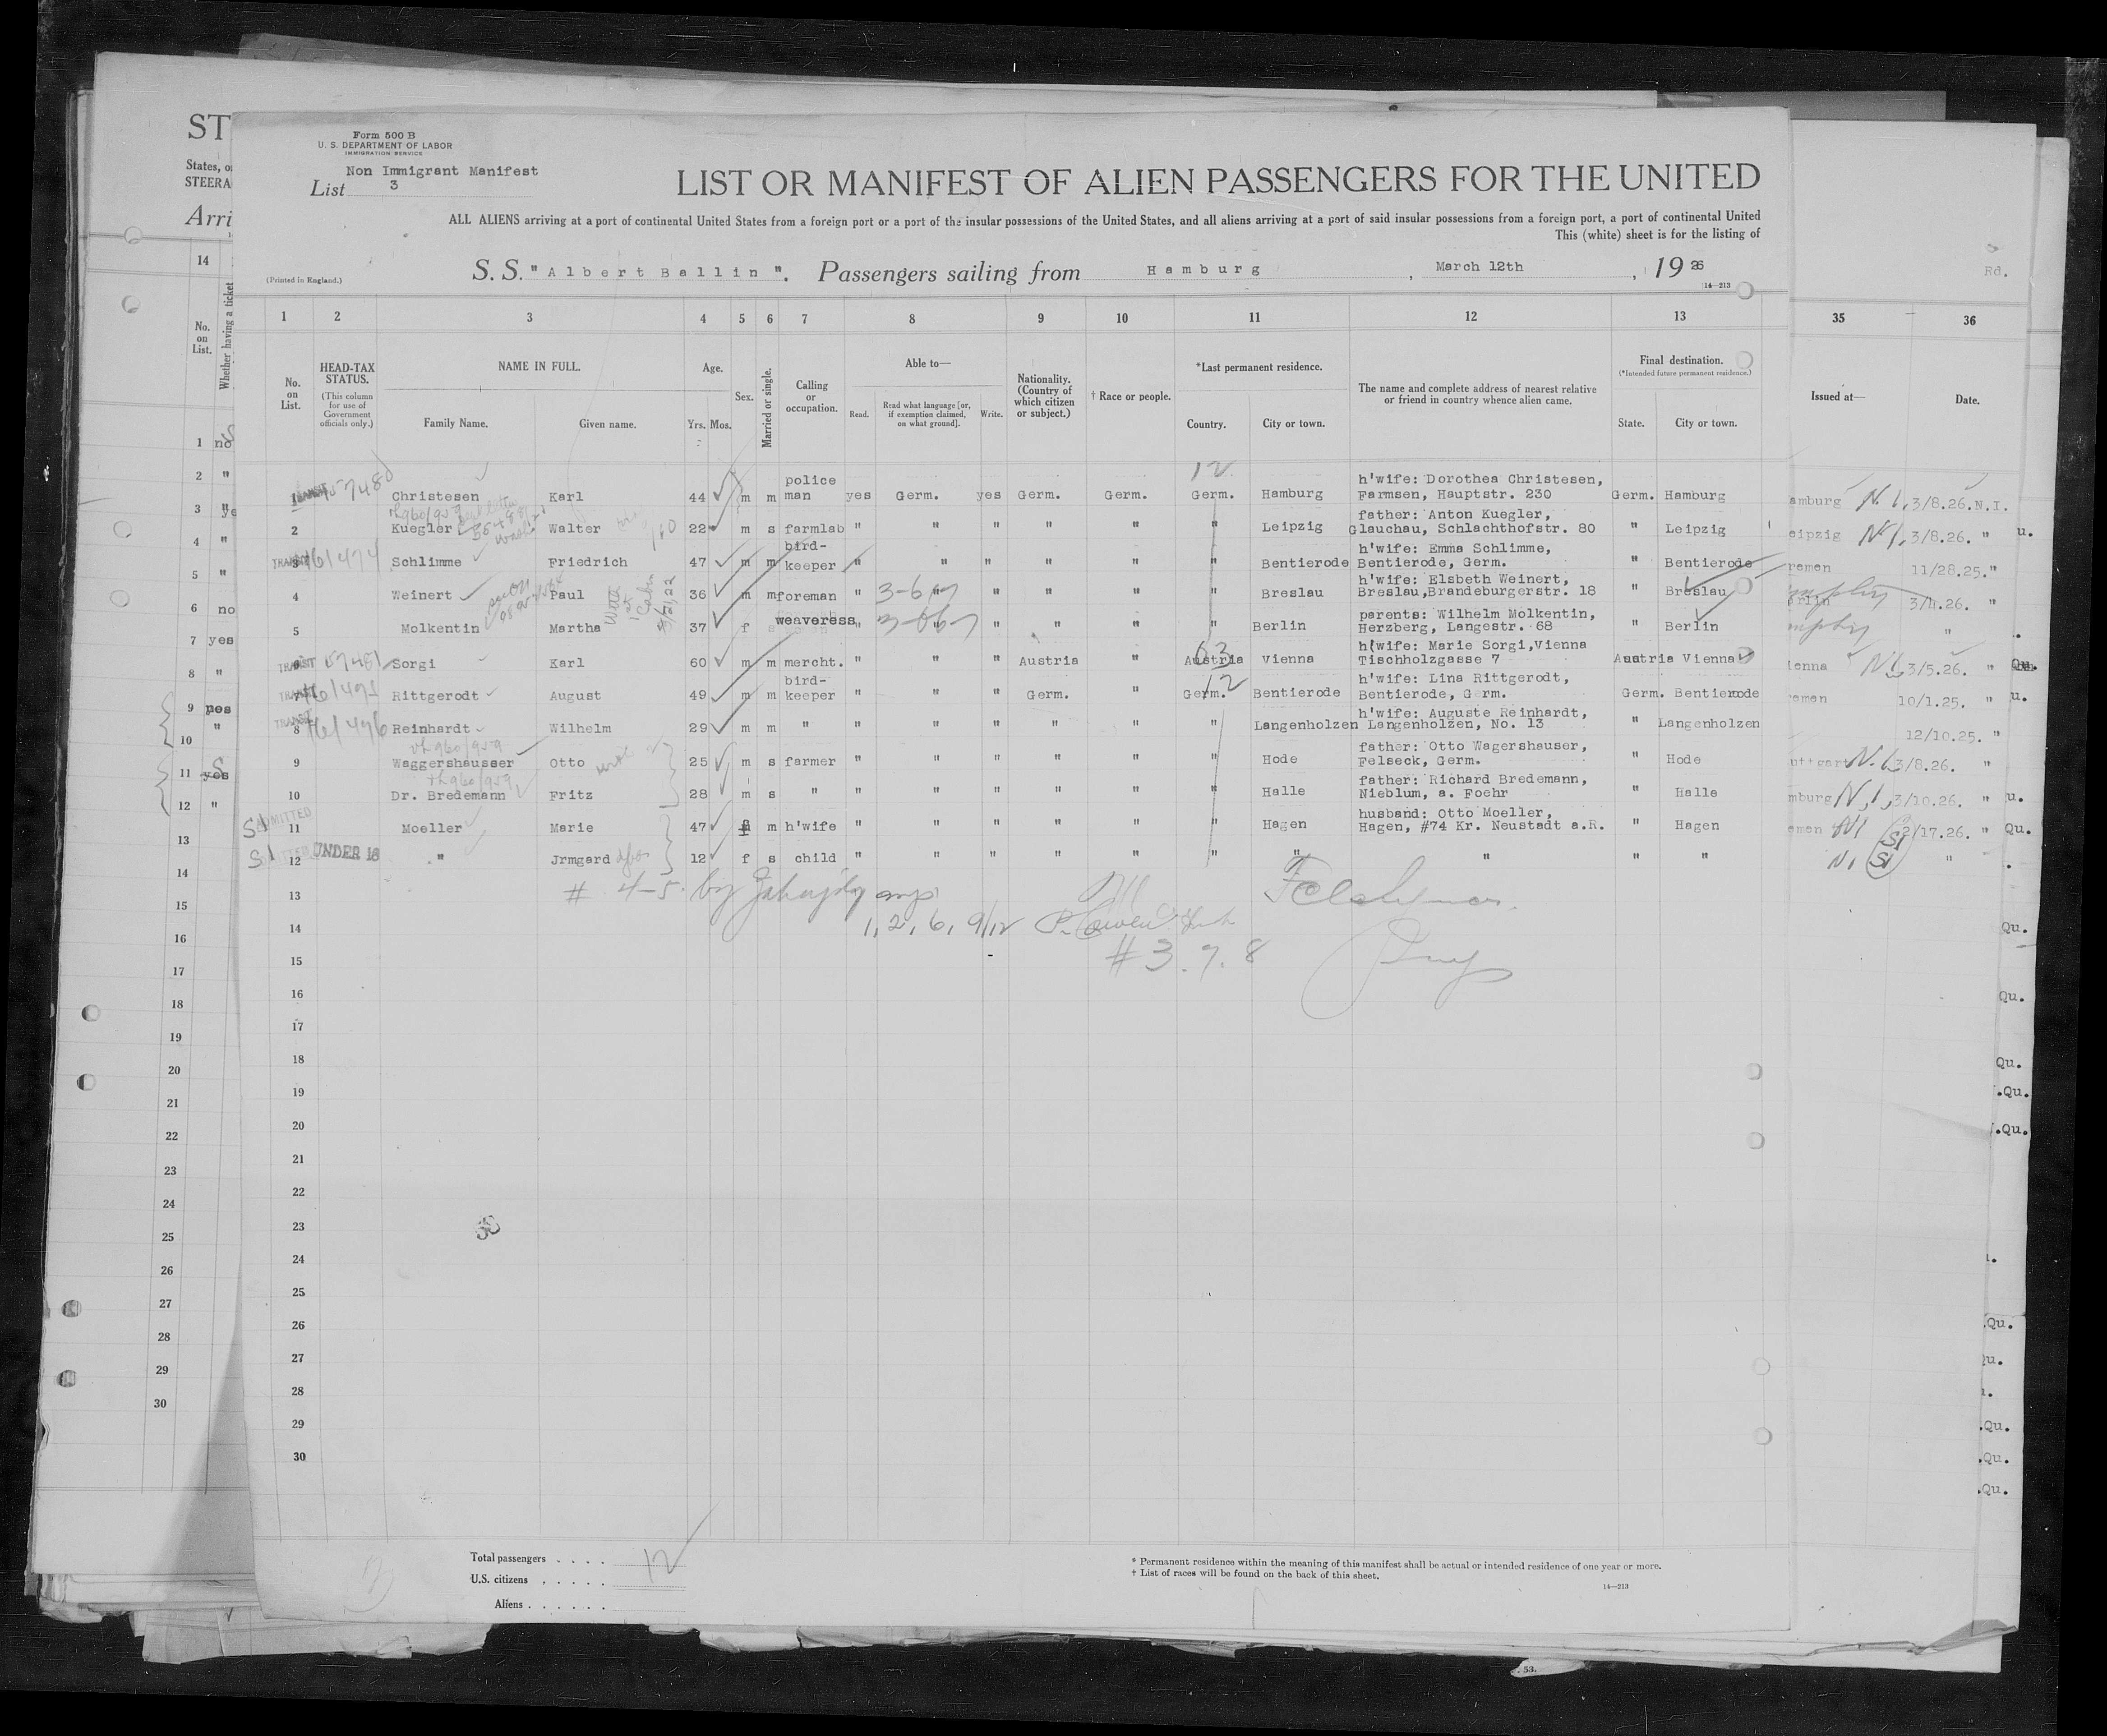 Form 500 B
U. S. DEPARTMENT OF LABOR
IMMIGRATION SERVICE
Non Immigrant Manifest
List 3
ST
States, o
STEERA
Arri
LIST OR MANIFEST OF ALIEN PASSENGERS FOR THE UNITED
ALL ALIENS arriving at a port of continental United States from a foreign port or a port of the insular possessions of the United States, and all aliens arriving at a port of said insular possessions from a foreign port, a port of continental United
This (white) sheet is for the listing of
(Printed in England.)
S. S. " Albert Ballin ". Passengers sailing from Hamburg, March 12th, 1926
14—213
Rd.
14 1 2 3 4 5 6 7 8 9 10 11 12 13 35 36
No. on List.
Whether having a ticket
No. on List.
HEAD-TAX STATUS.
(This column for use of Government officials only.)
NAME IN FULL.
Family Name. Given name.
Age.
Yrs. Mos.
Sex.
Married or single.
Calling or occupation.
Able to—
Read. Read what language [or, if exemption claimed, on what ground]. Write.
Nationality. (Country of which citizen or subject.)
† Race or people.
*Last permanent residence.
Country. City or town.
The name and complete address of nearest relative or friend in country whence alien came.
Final destination.
(*Intended future permanent residence.)
State. City or town.
Issued at— Date.
12
1 TRANSIT Christesen Karl 44 m m police man yes Germ. yes Germ. Germ. Germ. Hamburg h'wife: Dorothea Christesen, Farmsen, Hauptstr. 230 Germ. Hamburg amburg N.I. 3/8.26. N.I.
2 Kuegler Walter 22 m s farmlab " " " " " " Leipzig father: Anton Kuegler, Glauchau, Schlachthofstr. 80 " Leipzig eipzig N.I. 3/8.26. " u.
3 TRANSIT 161474 Schlimme Friedrich 47 m m bird-keeper " " " " " " Bentierode h'wife: Emma Schlimme, Bentierode, Germ. " Bentierode remen 11/28.25. "
4 Weinert Paul 36 m m foreman " " " " " " Breslau h'wife: Elsbeth Weinert, Breslau, Brandeburgerstr. 18 " Breslau erlin 3/4.26. "
5 Molkentin Martha 37 f s weaveress " " " " " " Berlin parents: Wilhelm Molkentin, Herzberg, Langestr. 68 " Berlin "
63
6 TRANSIT 57481 Sorgi Karl 60 m m mercht. " " " Austria " Austria Vienna h'wife: Marie Sorgi, Vienna Tischholzgasse 7 Austria Vienna ienna N.I. 3/5.26. " Qu.
12
7 TRANSIT Rittgerodt August 49 m m bird-keeper " " " Germ. " Germ. Bentierode h'wife: Lina Rittgerodt, Bentierode, Germ. Germ. Bentierode remen 10/1.25. " u.
8 TRANSIT 161496 Reinhardt Wilhelm 29 m m " " " " " " " Langenholzen h'wife: Auguste Reinhardt, Langenholzen, No. 13 " Langenholzen 12/10.25. "
9 Waggershausser Otto 25 m s farmer " " " " " " Hode father: Otto Wagershauser, Felseck, Germ. " Hode uttgart N.I. 3/8.26. "
10 Dr. Bredemann Fritz 28 m s " " " " " " " Halle father: Richard Bredemann, Nieblum, a. Foehr " Halle mburg N.I. 3/10.26. " u.
11 SI ADMITTED Moeller Marie 47 f m h'wife " " " " " " Hagen husband: Otto Moeller, Hagen, #74 Kr. Neustadt a.R. " Hagen emen NI 2/17.26. " Qu.
12 SI UNDER 16 " Jrmgard 12 f s child " " " " " " " " " " NI SI "
13 # 4-5 by
14 1, 2, 6, 9/12
15 # 3. 7. 8
16
17
18
19
20
21
22
23
24
25
26
27
28
29
30
Total passengers . . . . 12
U.S. citizens . . . . .
Aliens . . . . . .
* Permanent residence within the meaning of this manifest shall be actual or intended residence of one year or more.
† List of races will be found on the back of this sheet.
14—213
53.